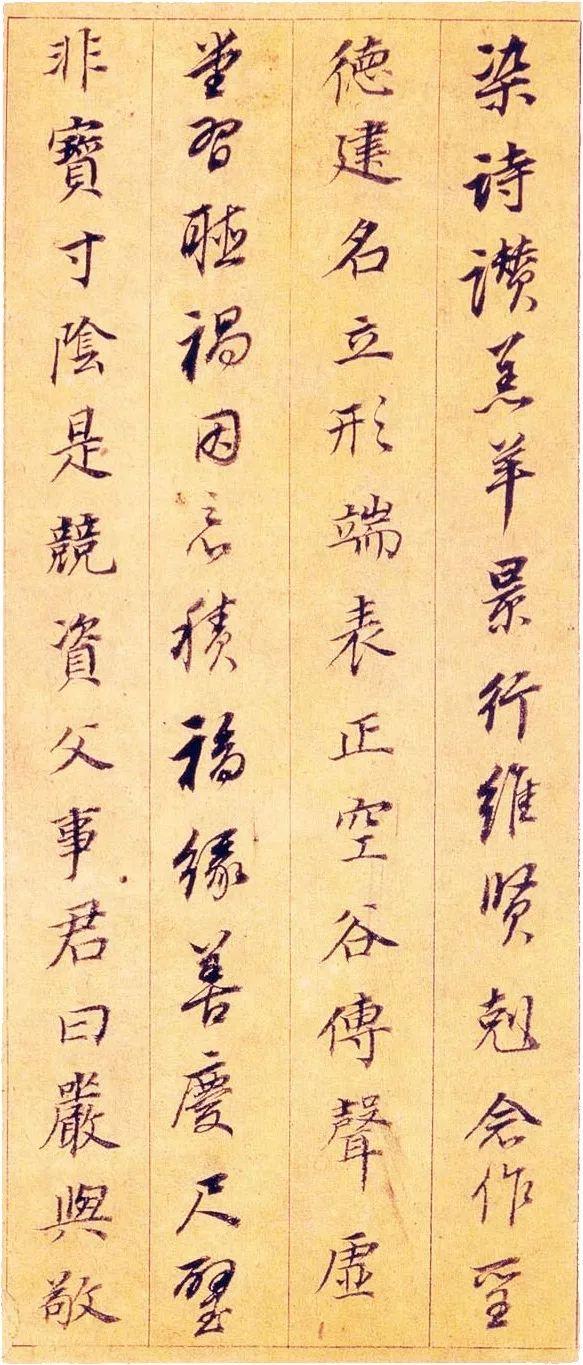 染诗讃羔羊景行維賢剋念作聖
德建名立形端表正空谷傳聲虛
堂習聴禍因惡積福緣善慶尺璧
非寶寸陰是競資父事君曰嚴與敬